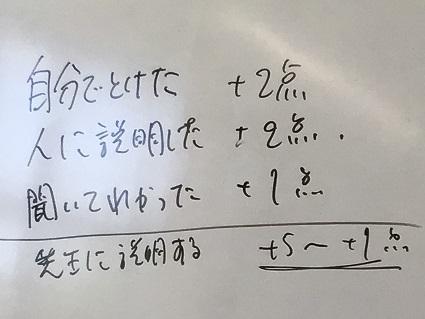 自分でとけた +2点
人に説明した +2点.
聞いてわかった +1点
先生に説明する +5〜+1点